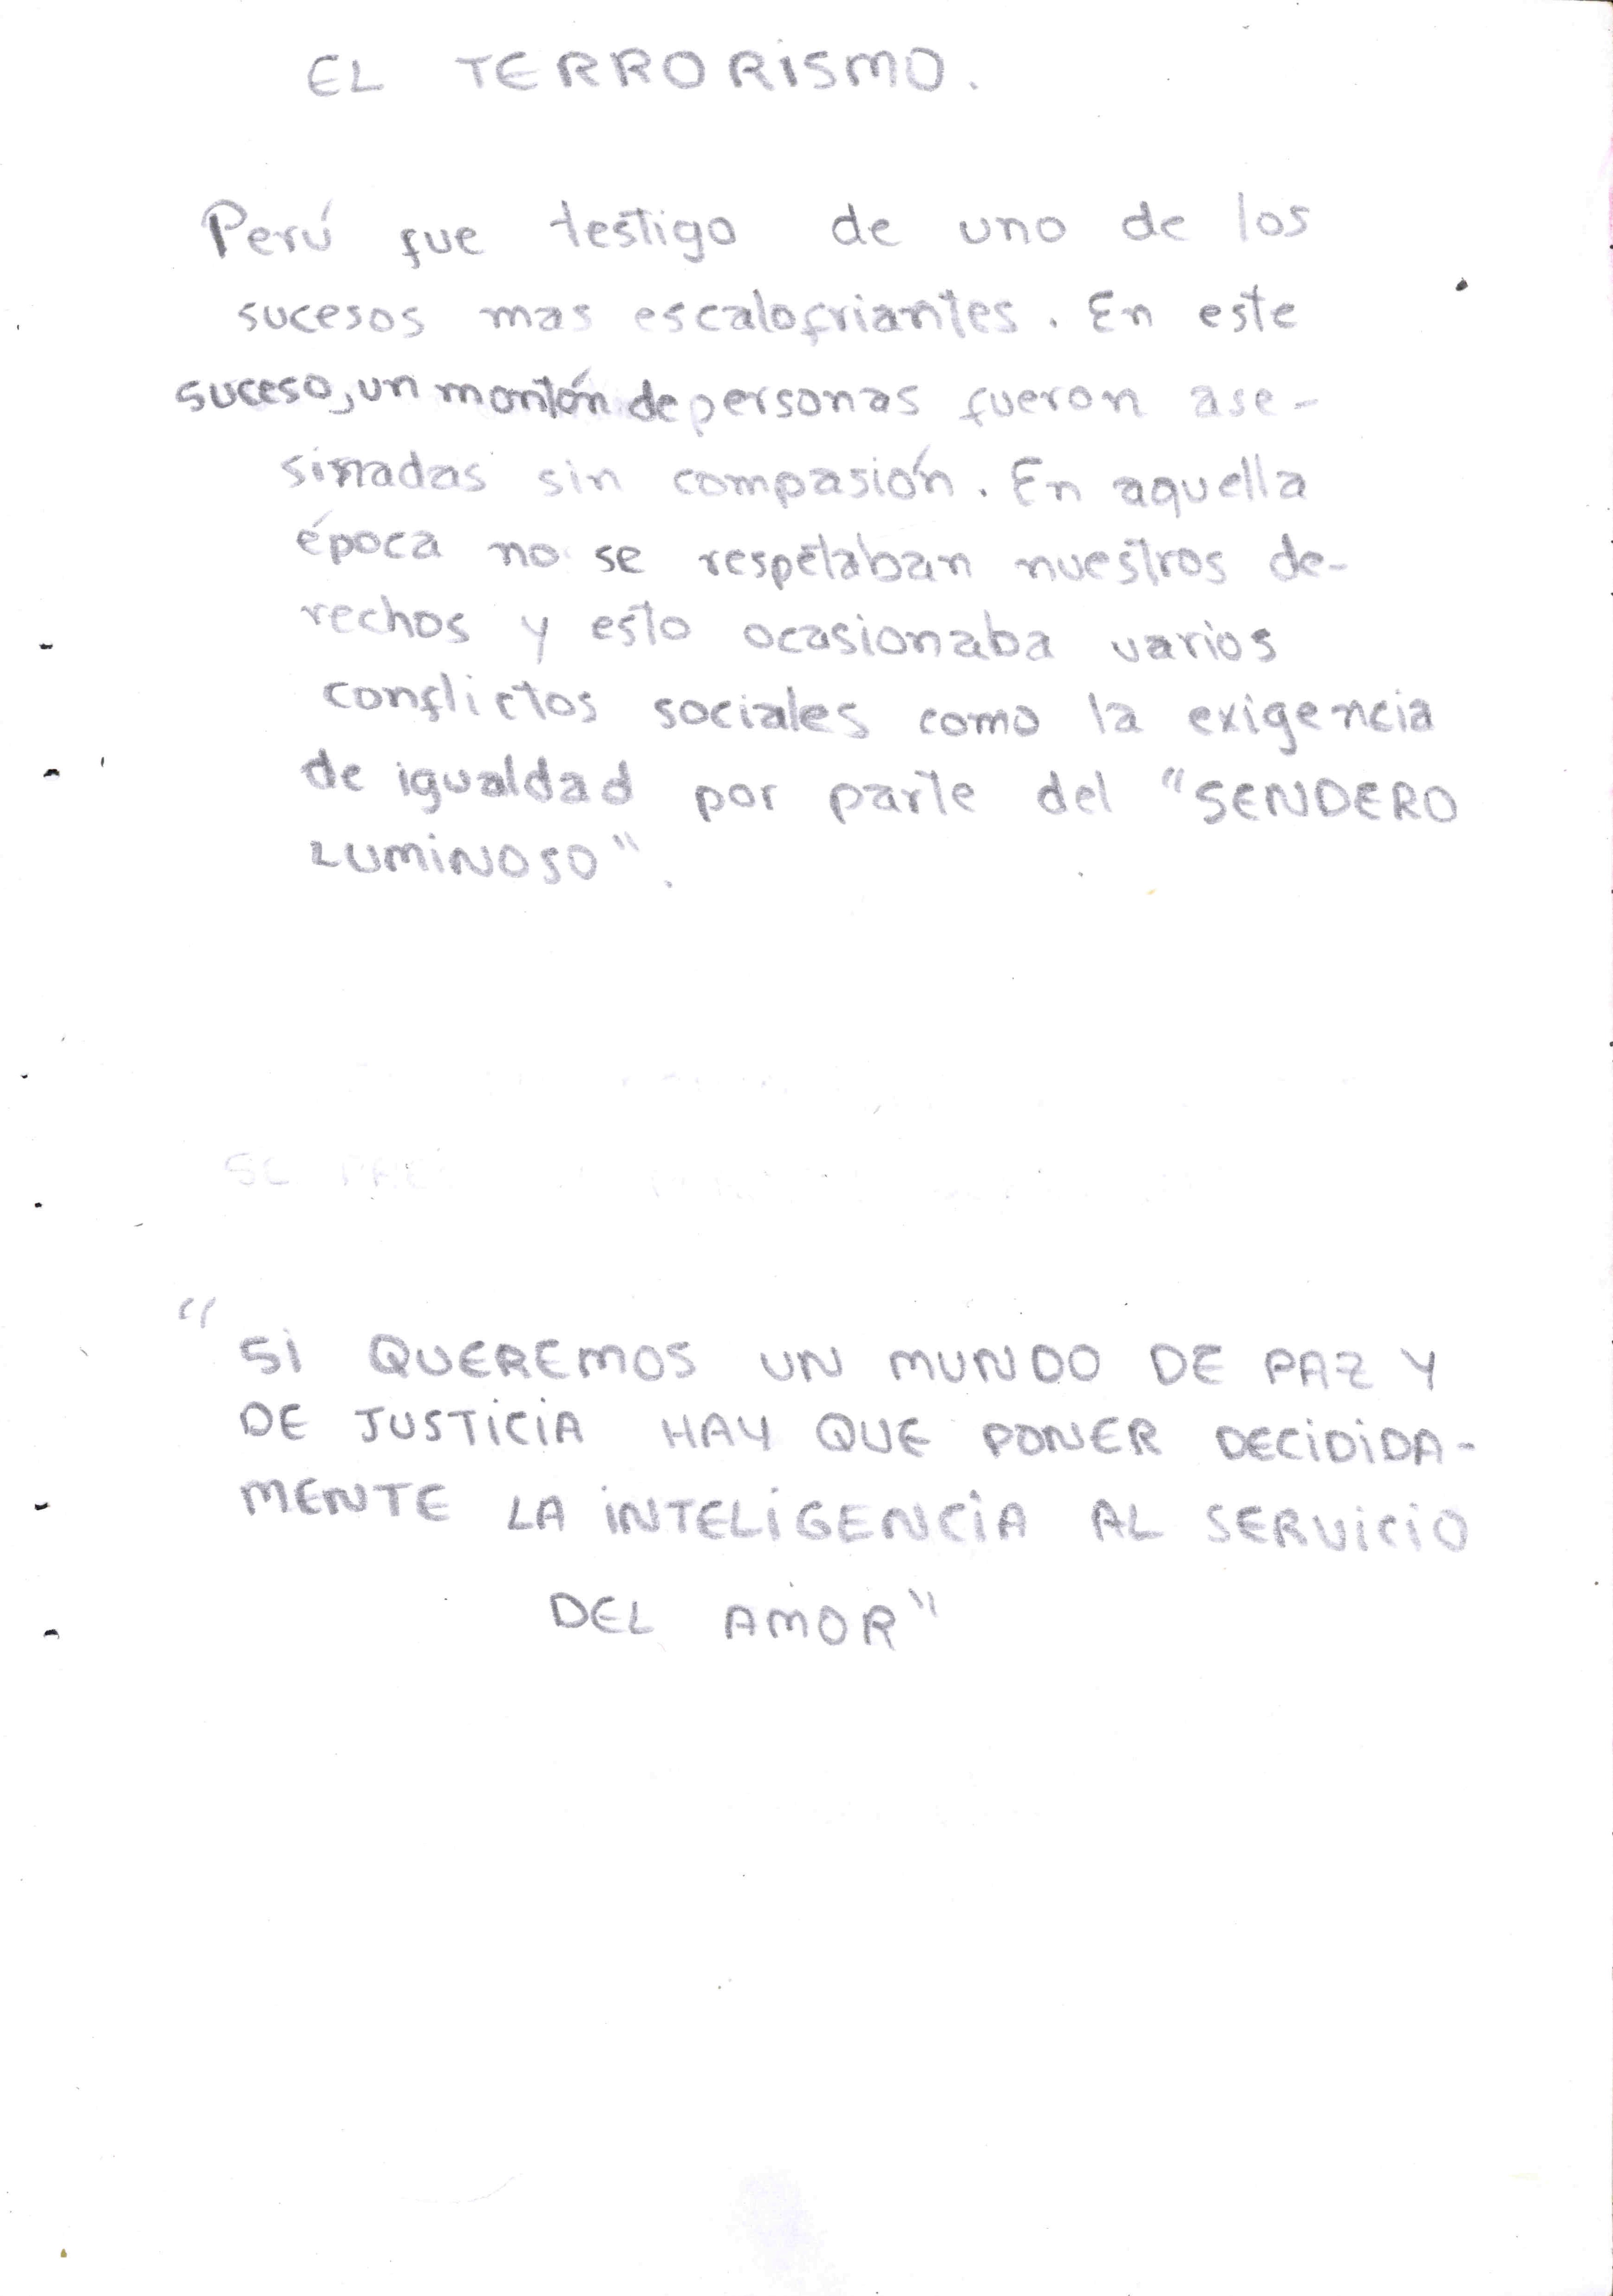 EL TERRORISMO.
Perú fue testigo de uno de los
sucesos mas escalofriantes. En este
suceso, un montón de personas fueron ase-
sinadas sin compasión. En aquella
época no se respetaban nuestros de-
rechos y esto ocasionaba varios
conflictos sociales como la exigencia
de igualdad por parte del "SENDERO
LUMINOSO".
"SI QUEREMOS UN MUNDO DE PAZ Y
DE JUSTICIA HAY QUE PONER DECIDIDA-
MENTE LA INTELIGENCIA AL SERVICIO
DEL AMOR"